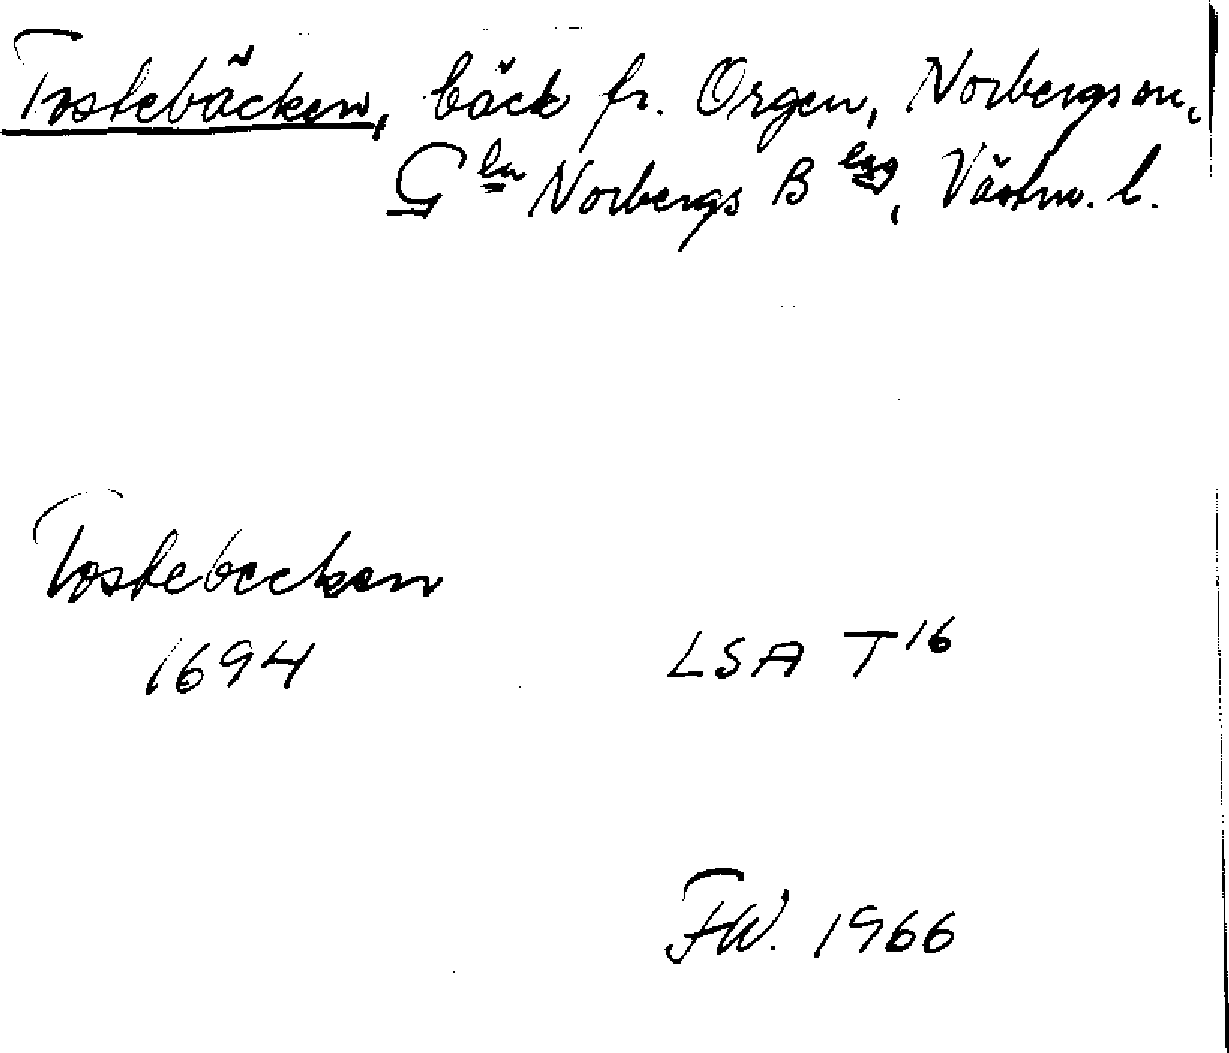 Tostebäcken, bäck fr. Orgen, Norbergs sn,
Gla Norbergs Blag, Västm. l.
Tostebecken
1694
LSA T16
FW. 1966